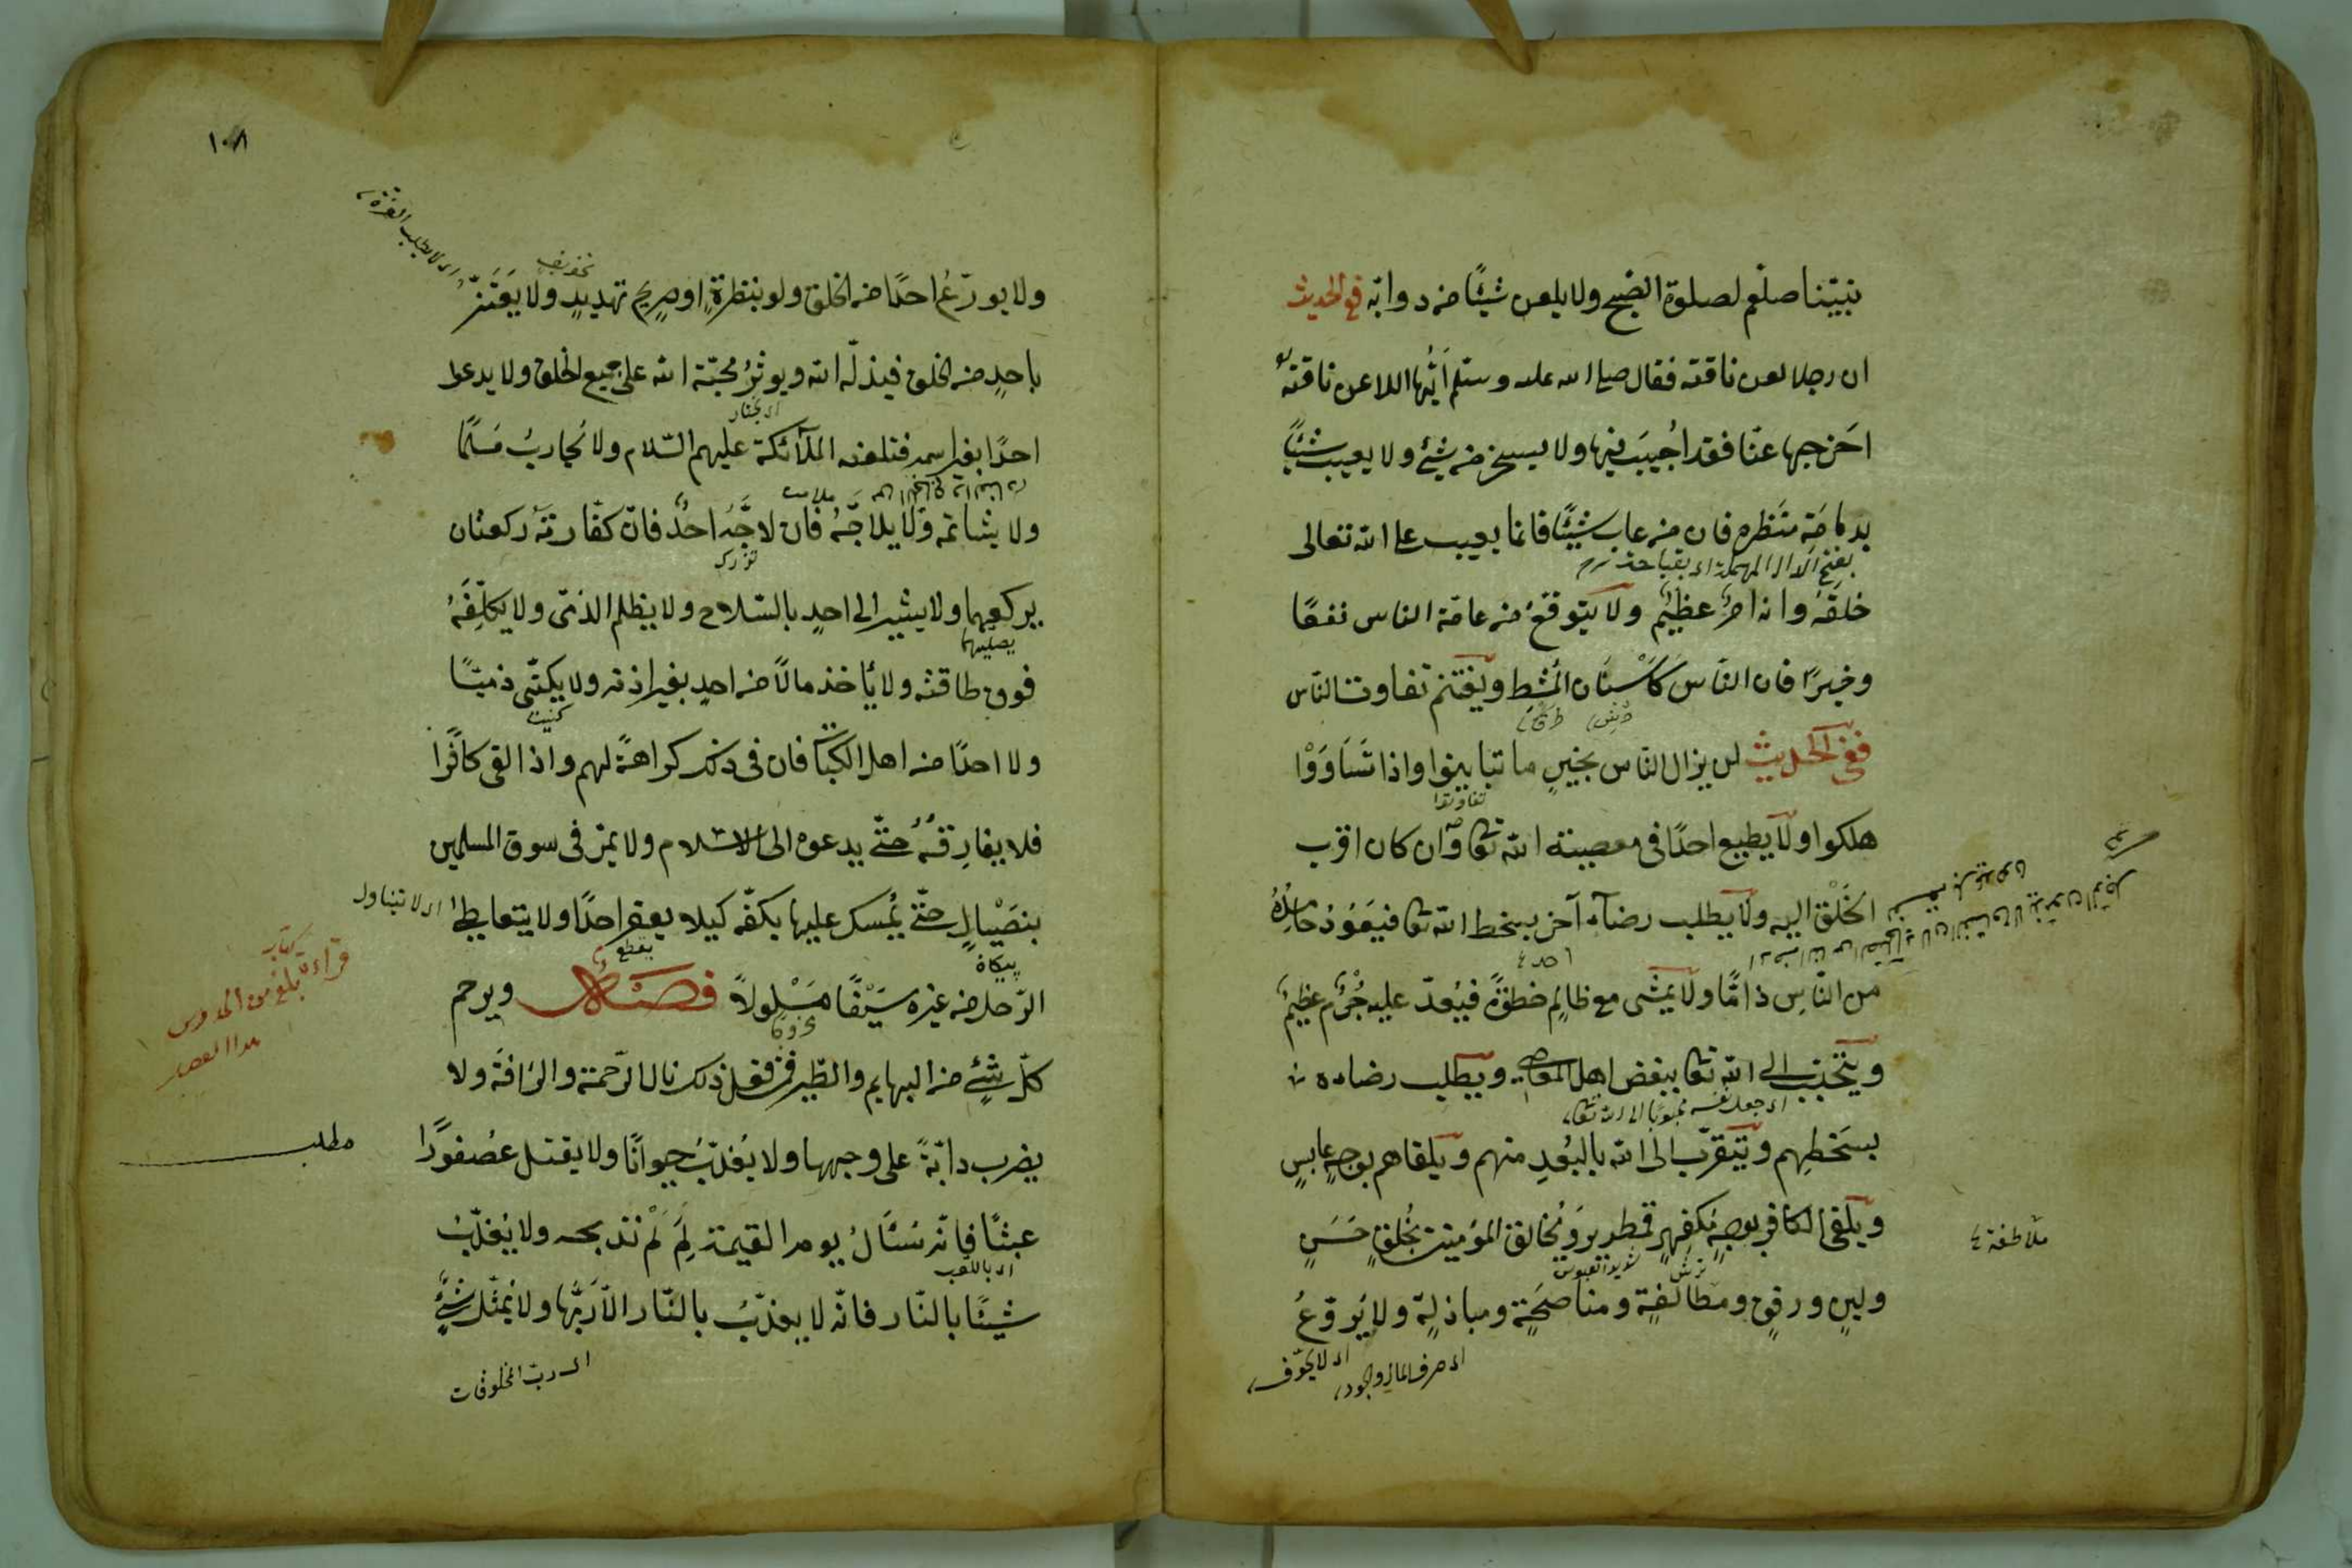 نبيّنا صلعم لصلوة الصّبح ولا يلعن شيئًا من دوابّه ففى الحديث
ان رجلا لعن ناقته فقال صلى الله عليه وسلّم ايّها اللاعن ناقته
اخرجها عنّا فقد اجيبت فيها ولا يسخر من شئ ولا يعيب شيئًا
بدمامة منظره فان من عاب شيئًا فانما يعيب على الله تعالى
بفتح الدال المهملة اى
خلقه وانه امر عظيم ولا يتوقّع من عامّة الناس نفعًا
وخيرًا فان النّاس كاسنان المشط ويغتنم تفاوت النّاس
ففى الحديث لن يزال النّاس بخير ما تباينوا واذا تساووا
تفاوتوا
هلكوا ولا يطيع احدًا فى معصية الله تعا وان كان اقرب
الخلق اليه ولا يطلب رضاء آخر بسخط الله تعا فيعود حامده
احد
من النّاس ذامًّا ولا يمشى مع ظالم خطوة فيعدّ عليه جرم عظيم
ويتحبّب الى الله تعا ببغض اهل المعاصى ويطلب رضاه
اى جعل نفسه محبوبا الى الله تعا
بسخطهم ويتقرّب الى الله بالبعد منهم ويلقاهم بوجه عابس
ويلقى الكافر بوجه مكفهر قمطرير ويخالق المؤمنين بخلق حسن
ملاطفة
ترش شديد العبوس
ولين ورفق ومطالفة ومناصحة ومباذلة ولا يروّع
اى صرف المال والجود
اى لا يخوّف
١٠٨
اى لا يطلب العزة
تخويف
ولا يورّع احدًا من الخلق ولو بنظرة او صريح تهديد ولا يعتزّ
باحد من الخلق فيذلّه الله ويوثر محبّة الله على جميع الخلق ولا يدعو
اى يختار
احدًا بغير اسمه فتلعنه الملآئكة عليهم السّلام ولا يحارب مسلمًا
ولا يشاتمه ولا يلاجّه فان لاجّه احد فانّ كفّارته ركعتان
يركعهما ولا يشير الى احد بالسّلاح ولا يظلم الذمّى ولا يكلّفه
يصليهما
فوق طاقته ولا يأخذ مالاً من احد بغير اذنه ولا يكنّى ذميًّا
كنيت
ولا احدًا من اهل الكتاب فان فى ذلك كراهة لهم واذا لقى كافرًا
فلا يفارقه حتّى يدعوه الى الاسلام ولا يمرّ فى سوق المسلمين
بنصال حتّى يمسك عليها بكفّه كيلا يعقر احدًا ولا يتعاطى
اى لا تيناول
يقطع
پيكان
الرّجل من غيره سيفًا مسلولاً فصل ويرحم
كلّ شئ من البهايم والطّير فمن فعل ذلك نال الرّحمة والرّافة ولا
يضرب دابّة على وجهها ولا يعذّب حيوانًا ولا يقتل عصفورًا
مطلب
عبثًا فانّه يسئال يوم القيمة لم لم تذبحه ولا يعذّب
اى باللعب
شيئًا بالنّار فانّه لا يعذّب بالنّار الّا ربّها ولا يمثّل بشئ
اى ربّ المخلوقات